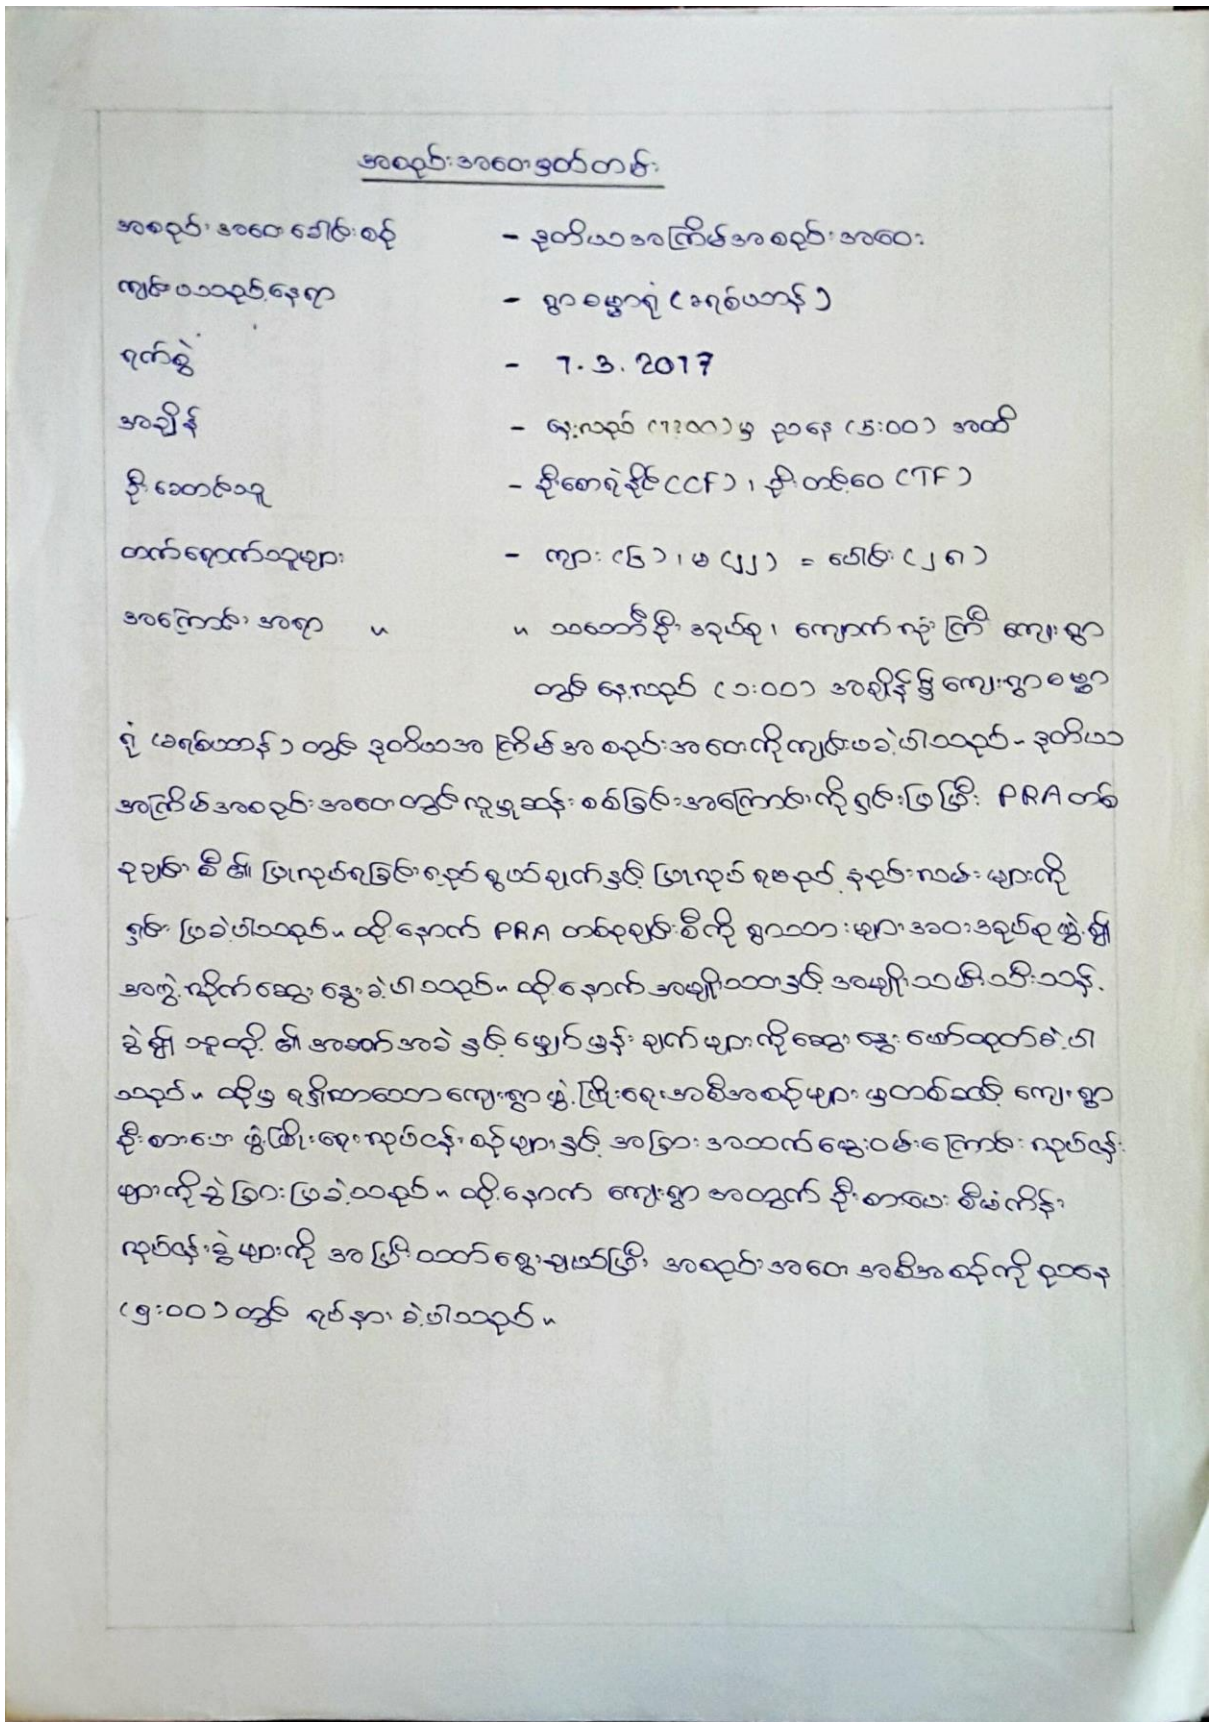 အစည်းအဝေးမှတ်တမ်း
အစည်းအဝေးခေါင်းစဉ် - ဒုတိယအကြိမ်အစည်းအဝေး
ကျင်းပသည့်နေရာ - ရွာဓမ္မာရုံ (ခရစ်ယာန်)
ရက်စွဲ - 7.3.2017
အချိန် - နေ့လည် (1:00) မှ ညနေ (5:00) အထိ
ဦးဆောင်သူ - ဦးစောရဲနိုင် (CCF)၊ ဦးတင့်ဝေ (TF)
တက်ရောက်သူများ - ကျား (၆)၊ မ (၂၂) = ပေါင်း (၂၈)
အကြောင်းအရာ ။ ။ သင်္ဘောဦးအုပ်စု၊ ကျောက်လုံးကြီးကျေးရွာ
တွင် နေ့လည် (၁:၀၀) အချိန်၌ ကျေးရွာဓမ္မာ
ရုံ (ခရစ်ယာန်) တွင် ဒုတိယအကြိမ်အစည်းအဝေးကိုကျင်းပခဲ့ပါသည်။ ဒုတိယ
အကြိမ်အစည်းအဝေးတွင်လူမှုဆန်းစစ်ခြင်းအကြောင်းကိုရှင်းပြပြီး PRA တစ်
ခုချင်းစီ၏ ပြုလုပ်ရခြင်းရည်ရွယ်ချက်နှင့် ပြုလုပ်ရမည့်နည်းလမ်းများကို
ရှင်းပြခဲ့ပါသည်။ ထို့နောက် PRA တစ်ခုချင်းစီကို ရွာသားများအားအုပ်စုဖွဲ့၍
အဖွဲ့လိုက်ဆွေးနွေးခဲ့ပါသည်။ ထို့နောက် အမျိုးသားနှင့် အမျိုးသမီးသီးသန့်
ခွဲ၍ သူတို့၏အခက်အခဲနှင့် မျှော်မှန်းချက်များကိုဆွေးနွေးဖော်ထုတ်ခဲ့ပါ
သည်။ ထိုမှ ရရှိလာသောကျေးရွာဖွံ့ဖြိုးရေးအစီအစဉ်များမှတစ်ဆင့် ကျေးရွာ
ဦးစားပေးဖွံ့ဖြိုးရေးလုပ်ငန်းစဉ်များနှင့် အခြားအသက်မွေးဝမ်းကြောင်းလုပ်ငန်း
များကိုခွဲခြားပြခဲ့သည်။ ထို့နောက် ကျေးရွာအတွက် ဦးစားပေးစီမံကိန်း
လုပ်ငန်းခွဲများကို အပြီးသတ်ရွေးချယ်ပြီး အစည်းအဝေးအစီအစဉ်ကိုညနေ
(၅:၀၀) တွင် ရပ်နားခဲ့ပါသည်။